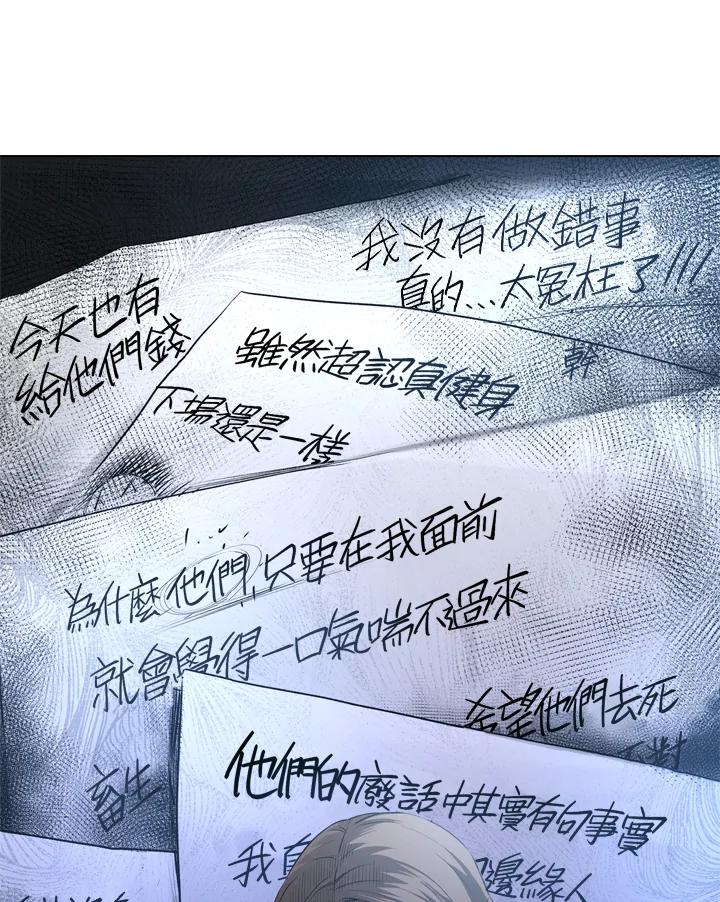 我沒有做錯事
真的...太冤枉了!!!
今天也有
給他們錢
雖然超認真健身
幹
下場還是一樣
為什麼他們,只要在我面前
就會覺得一口氣喘不過來
希望他們去死
不對
畜生
他們的廢話中其實有句事實
我真
邊緣人